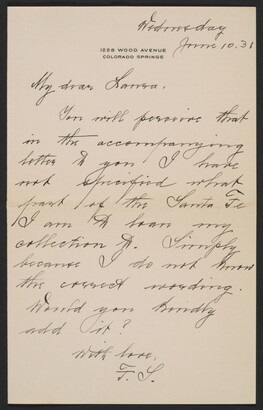 Wednesday
June 10. 31
1228 WOOD AVENUE
COLORADO SPRINGS
My dear Laura,
You will perceive that
in the accompanying
letter to you I have
not specified what
part of the Santa Fe
I am to loan my
collection to. Simply
because I do not know
the correct wording.
Would you kindly
add it?
With love,
F. S.